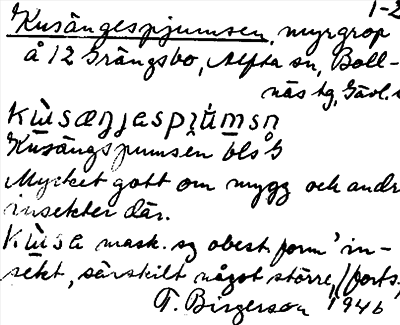 1-2
Kusängespjumsen, myrgrop
å 12 Grängsbo, Alfta sn, Boll-
näs tg, Gävl.
Kusängspumsen bls G
Mycket gott om mygg och andr
insekter där.
Kùsa mask. sg obest form 'in-
sekt, särskilt något större, (forts.
T. Birgerson 1946